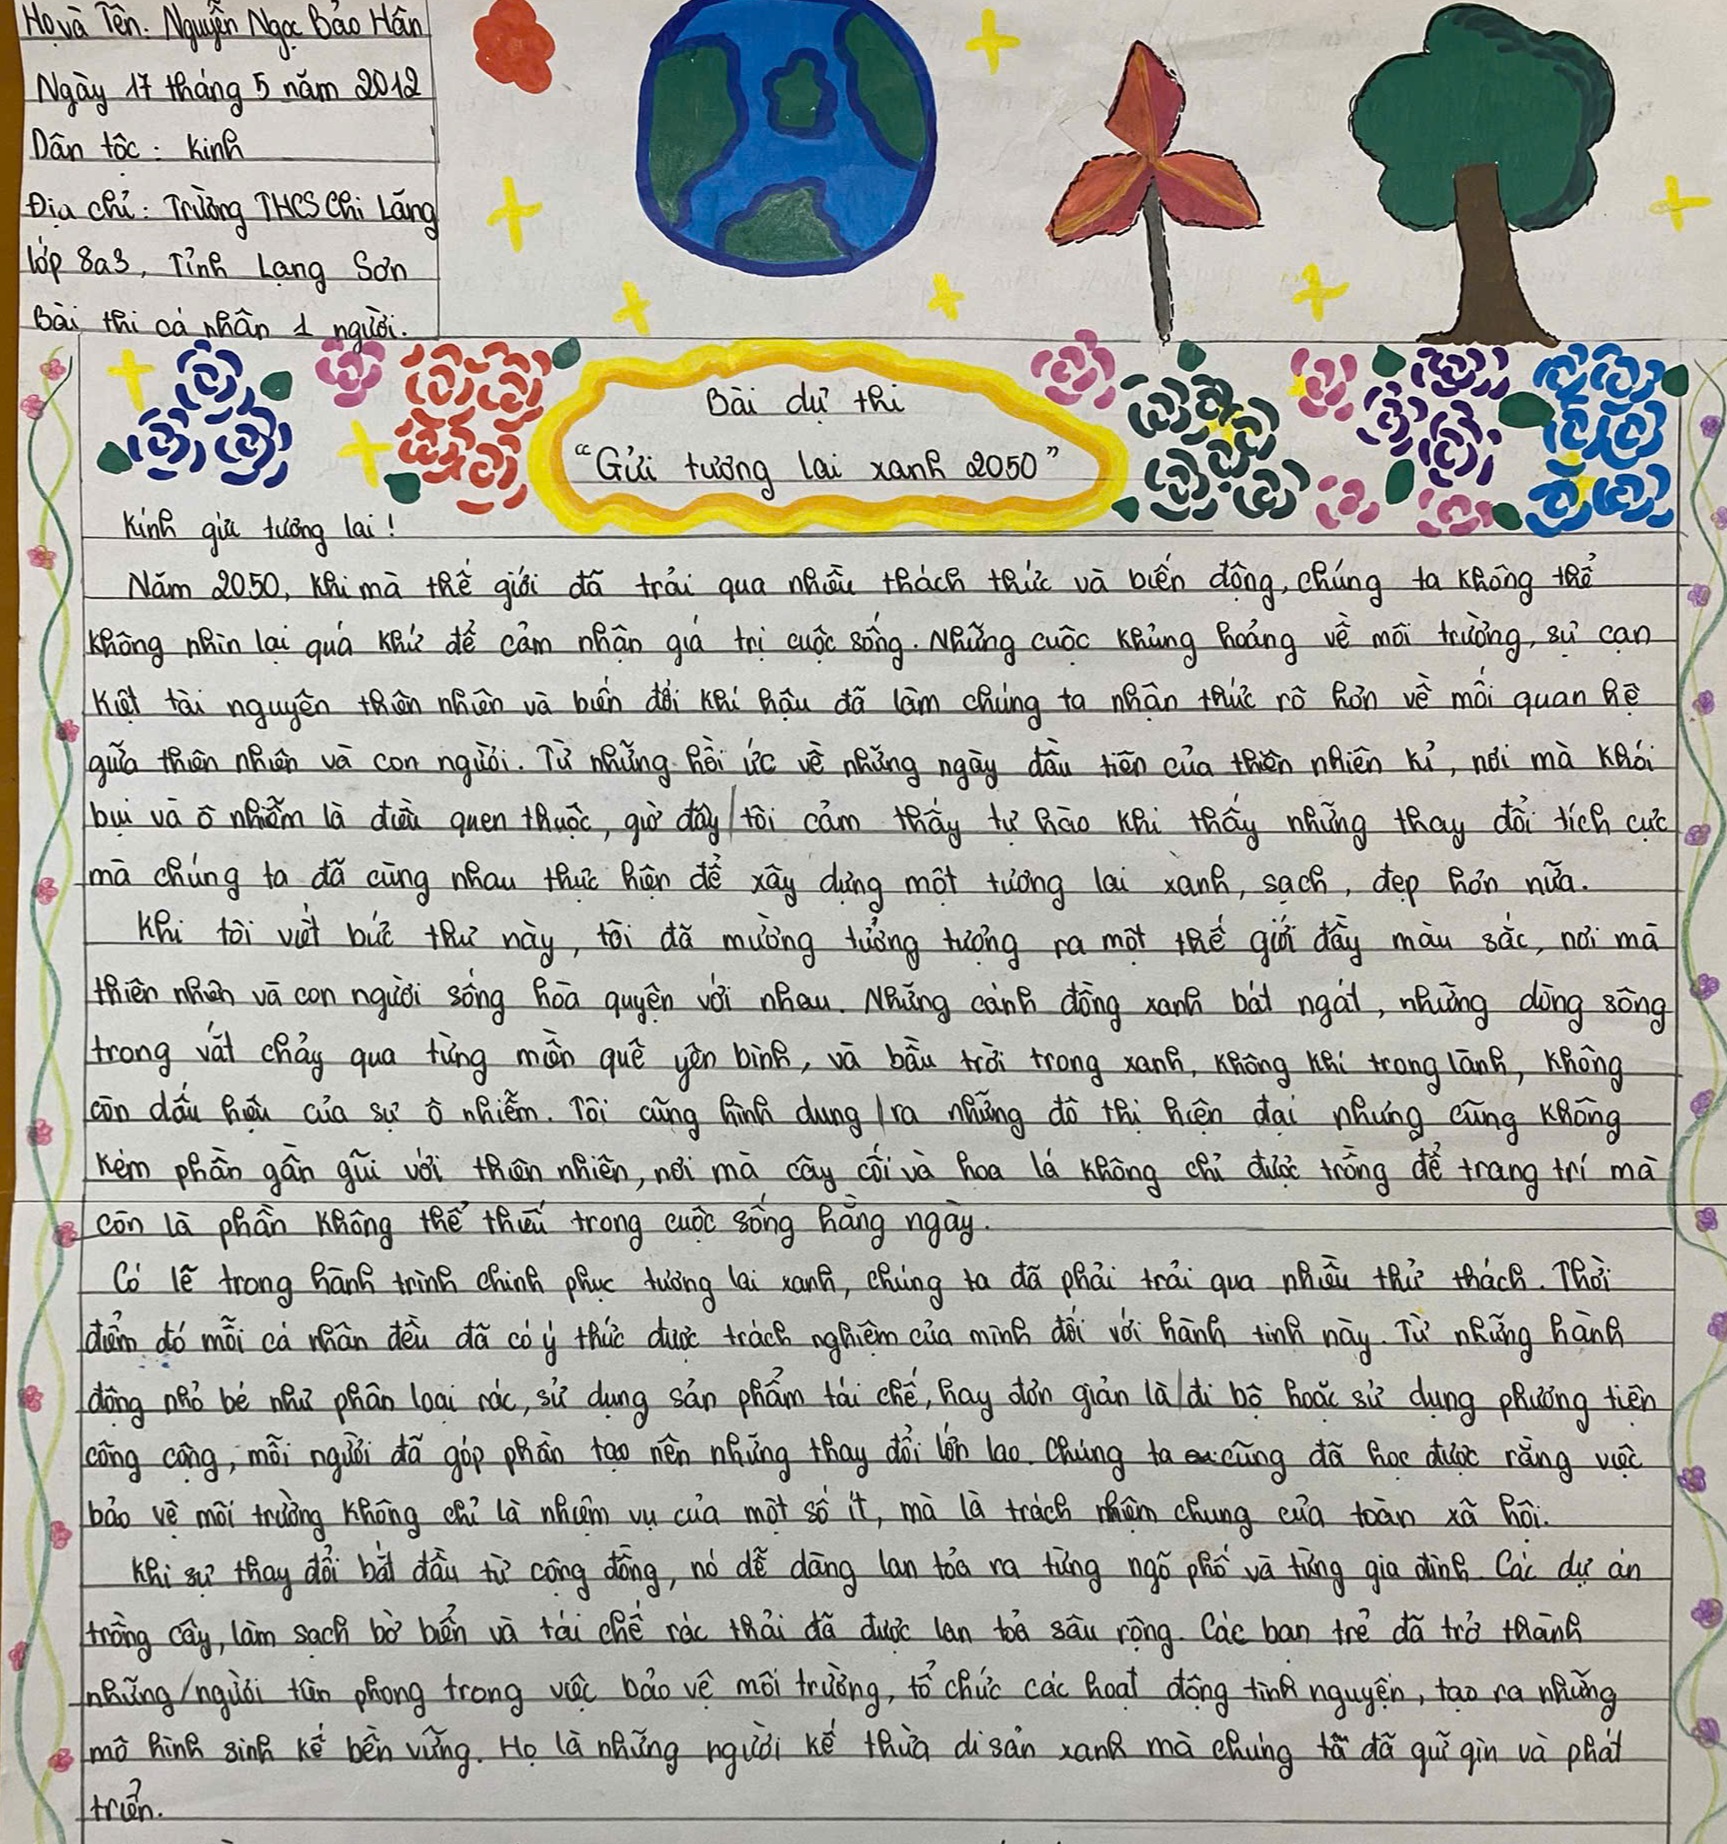 Họ và Tên: Nguyễn Ngọc Bảo Hân
Ngày 17 tháng 5 năm 2012
Dân tộc: Kinh
Địa chỉ: Trường THCS Chi Lăng
lớp 8a3, Tỉnh Lạng Sơn
Bài thi cá nhân 1 người.
Bài dự thi
"Gửi tương lai xanh 2050"
Kính gửi tương lai!
Năm 2050, khi mà thế giới đã trải qua nhiều thách thức và biến động, chúng ta không thể
không nhìn lại quá khứ để cảm nhận giá trị cuộc sống. Những cuộc khủng hoảng về môi trường, sự cạn
kiệt tài nguyên thiên nhiên và biến đổi khí hậu đã làm chúng ta nhận thức rõ hơn về mối quan hệ
giữa thiên nhiên và con người. Từ những hồi ức về những ngày đầu tiên của thiên nhiên kỉ, nơi mà khói
bụi và ô nhiễm là điều quen thuộc, giờ đây tôi cảm thấy tự hào khi thấy những thay đổi tích cực
mà chúng ta đã cùng nhau thực hiện để xây dựng một tương lai xanh, sạch, đẹp hơn nữa.
Khi tôi viết bức thư này, tôi đã mường tưởng tượng ra một thế giới đầy màu sắc, nơi mà
thiên nhiên và con người sống hòa quyện với nhau. Những cánh đồng xanh bát ngát, những dòng sông
trong vắt chảy qua từng miền quê yên bình, và bầu trời trong xanh, không khí trong lành, không
còn dấu hiệu của sự ô nhiễm. Tôi cũng hình dung ra những đô thị hiện đại nhưng cũng không
kém phần gần gũi với thiên nhiên, nơi mà cây cối và hoa lá không chỉ được trồng để trang trí mà
còn là phần không thể thiếu trong cuộc sống hằng ngày.
Có lẽ trong hành trình chinh phục tương lai xanh, chúng ta đã phải trải qua nhiều thử thách. Thời
điểm đó mỗi cá nhân đều đã có ý thức được trách nghiệm của mình đối với hành tinh này. Từ những hành
động nhỏ bé như phân loại rác, sử dụng sản phẩm tái chế, hay đơn giản là đi bộ hoặc sử dụng phương tiện
công cộng, mỗi người đã góp phần tạo nên những thay đổi lớn lao. Chúng ta cũng đã học được rằng việc
bảo vệ môi trường không chỉ là nhiệm vụ của một số ít, mà là trách nhiệm chung của toàn xã hội.
Khi sự thay đổi bắt đầu từ cộng đồng, nó dễ dàng lan tỏa ra từng ngõ phố và từng gia đình. Các dự án
trồng cây, làm sạch bờ biển và tái chế rác thải đã được lan toả sâu rộng. Các bạn trẻ đã trở thành
những người tiên phong trong việc bảo vệ môi trường, tổ chức các hoạt động tình nguyện, tạo ra những
mô hình sinh kế bền vững. Họ là những người kế thừa di sản xanh mà chúng ta đã giữ gìn và phát
triển.